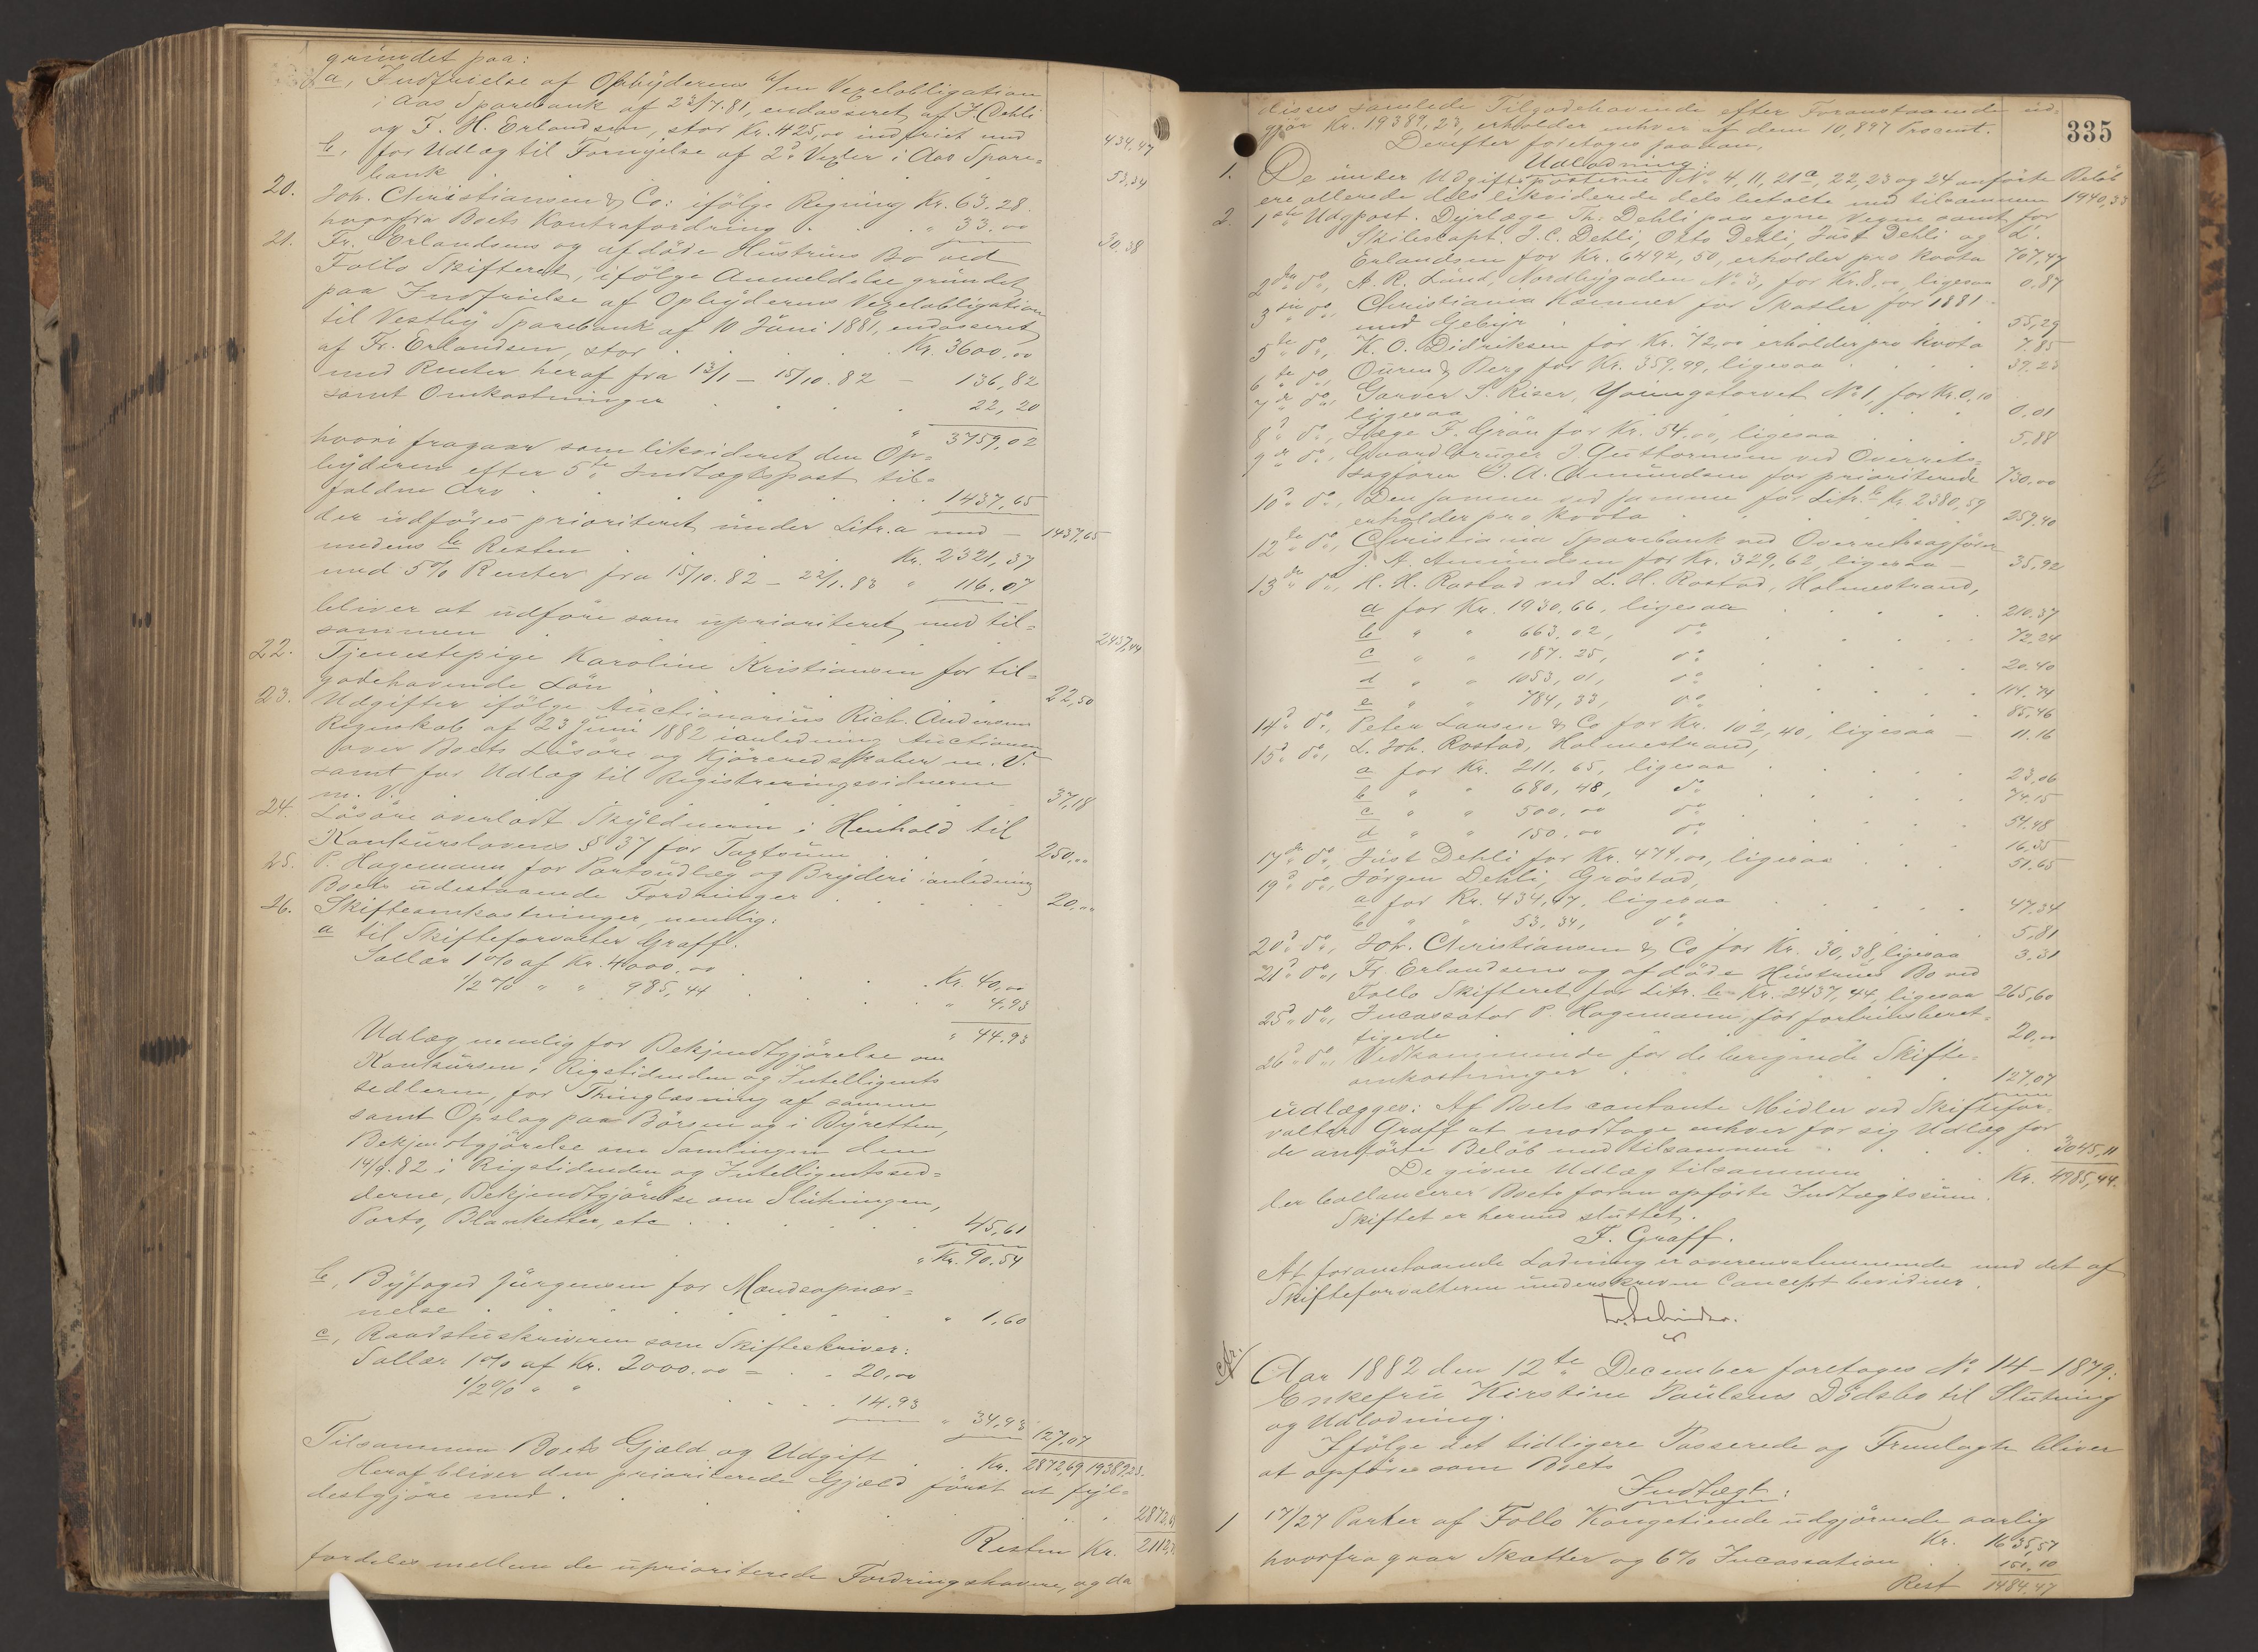 grundet paa:
a, Indfrielse af Opbyderens 6/m Vexelobligation
i Aas Sparebank af 23/7.81, endosseret af J. Dehli
og F. H. Erlandsen, stor Kr. 425,00 indfriet med 434,47
b, for Udlæg til Fornyelse af 2de Vexler i Aas Spare=
bank 53,34
20. Joh. Christiansen & Co: ifölge Regning Kr. 63.28.
hvorfra Boets Kontrafordring " 33.00
30,38
21. Fr. Erlandsens og afdöde Hustrues Bo ved
Follo Skifteret, ifölge Anmeldelse grundet
paa Indfrielse af Opbyderens Vexelobligation
til Vestby Sparebank af 10 Juni 1881, endosseret
af Fr. Erlandsen, stor Kr. 3600.00
med Renter heraf fra 13/1 – 15/10.82 – 136,82
samt Omkostninger 22,20
" 3759,02
hvori fragaar som likvideret den Op=
byderen efter 5te Indtægtspost til=
falden Arv 1437,65
der udföres prioriteret under Litr. a med – 1437,65
medens b Resten Kr. 2321,37
med 5% Renter fra 15/10.82 – 22/1.83 " 116,07
bliver at udföre som uprioriteret med til=
sammen 2437,44
22. Tjenestepige Karoline Kristiansen for til=
godehavende Lön 22,50
23. Udgifter ifölge Auctionarius Rich. Andersens
Regnskab af 23 Juni 1882 i anledning Auctionen
over Boets Lösöre og Kjöreredskaber m. V.
samt for Udlæg til Registreringsvidnerne
m. V. 37,18
24. Lösöre overladt Skyldneren i Henhold til
Konkurslovens § 37 for Taxtsum 250,00
25. P. Hagemann for Portoudlæg og Bryderi i anledning
Boets udestaaende Fordringer 20,00
26. Skifteomkostninger, nemlig:
a til Skifteforvalter Graff.
Sallær 1% af Kr. 4000.00 Kr. 40,00
1/2% " " 985,44 " 4,93
" 44.93
Udlæg nemlig for Bekjendtgjörelse om
Konkursen i Rigstidenden og Intelligents
sedlerne, for Thinglæsning af samme
samt Opslag paa Börsen og i Byretten,
Bekjendtgjörelse om Samlingen den
14/9.82 i Rigstidenden og Intelligentssed=
derne, Bekjendtgjörelse om Slutningen,
Porto, Blanketter, etc 45,61
" Kr. 90.54
b, Byfoged Jürgensen for Mændsopnæv=
nelse " 1,60
c, Raadstuskriveren som Skifteskriver:
Sallær 1% af Kr. 2000.00 = 20,00
1/2% " " 14.93
" 34,93 127,07
Tilsammen Boets Gjæld og Udgift Kr. 2872,69 19389,23.
Heraf bliver den prioriterede Gjæld först at fyl=
destgjöre med 2872,69
Resten Kr. 2112,
fordeles mellem de uprioriterede Fordringshavere, og da
335
disses samlede Tilgodehavende efter Foranstaaende ud
gjör Kr. 19389,23, erholder enhver af dem 10,897 Procent.
Derefter foretages saadan
Udlodning:
1. De under Udgiftsposterne No 4, 11, 21a, 22, 23 og 24 anförte Belöb
ere allerede dels likviderede dels betalte med tilsammen 1940,33
2. 1ste Udgpost. Dyrlæge Th. Dehli paa egne Vegne samt for
Skibscapt. J. C. Dehli, Otto Dehli, Just Dehli og L.
Erlandsen for Kr. 6492,50, erholder pro kvota 707,47
2den do, A. R. Lund, Nordbygaden No 3, for Kr. 8,00, ligesaa 0,87
3die do, Christiania Kæmner for Skatter for 1881
med Gebyr 55,29
5te do, K. O. Didriksen for Kr. 72,00 erholder pro kvota 7.85
6te do, Ouren & Berg for Kr. 359,99, ligesaa 39,23
7de do, Garver S. Riser, Youngstorvet No 1, for Kr. 0,10
ligesaa 0,01
8de do, Læge F. Grön for Kr. 54,00, ligesaa 5,88
9de do, Gaardbruger J Guttormsen ved Overrets=
sagförer J. A. Amundsen for prioriterede 730,00
10de do, Den samme ved samme for Litr. b Kr. 2380,59
erholder pro kvota 259,40
12te do, Christiania Sparebank ved Overretssagförer
J. A. Amundsen for Kr. 329,62, ligesaa – 35,92
13de do, H. H. Rostad ved L. H. Rostad, Holmestrand,
a for Kr. 1930,66, ligesaa 210,37
b " " 663,02, do 72,24
c " " 187.25, do 20.40
d " " 1053,01, do 114.74
e " " 784,33, do 85,46
14de do, Peter Larsen & Co for Kr. 102,40, ligesaa – 11.16
15de do, L. Joh. Rostad, Holmestrand,
a for Kr. 211,65, ligesaa 23,06
b " " 680,48, do 74.15
c " " 500,00 do 54,48
d " " 150,00 do 16,35
17de do, Just Dehli for Kr. 474,00, ligesaa 51,65
19de do, Jörgen Dehli, Gröstad,
a for Kr. 434,47, ligesaa 47,34
b " " 53,34, do 5,81
20de do, Joh. Christiansen & Co for Kr. 30,38, ligesaa 3,31
21de do, Fr. Erlandsens og afdöde Hustrues Bo ved
Follo Skifteret for Litr. b – Kr. 2437,44, ligesaa 265,60
25de do, Incassator P. Hagemann, for fortrinsberet=
tigede 20,00
26de do, Vedkommende for de beregnede Skifte=
omkostninger 127,07
udlægges: Af Boets contante Midler ved Skiftefor=
valter Graff at modtage enhver for sig Udlæg for
de anförte Belöb med tilsammen 3045,11
De givne Udlæg tilsammen Kr. 4985,44.
der ballancerer Boets foran opförte Indtægtssum.
Skiftet er hermed sluttet.
F. Graff.
At foranstaaende Lodning er overensstemmende med det af
Skifteforvalteren underskrevne Concept bevidner.
Aar 1882 den 12te December foretoges No 14 – 1879:
Enkefru Kirstine Paulsens Dödsbo til Slutning
og Udlodning.
Ifölge det tidligere Passerede og Fremlagte bliver
at opföre som Boets
Indtægt:
1 17/27 Parter af Follo Kongetiende udgjörende aarlig
Kr. 1635,57
hvorfra gaar Skatter og 6% Incassation 151,10
Rest 1484,47